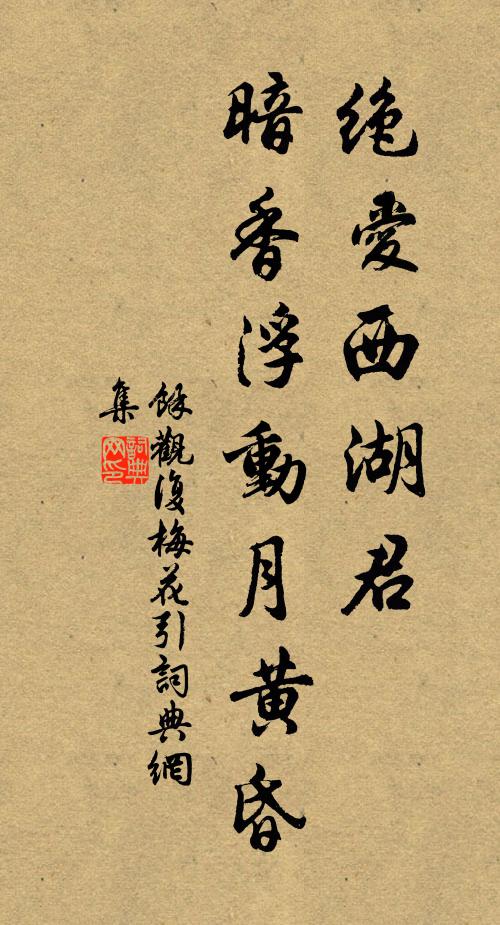 绝爱西湖君
暗香浮動月黄昏
餘觀復梅花引詞典網
集
詞典網印